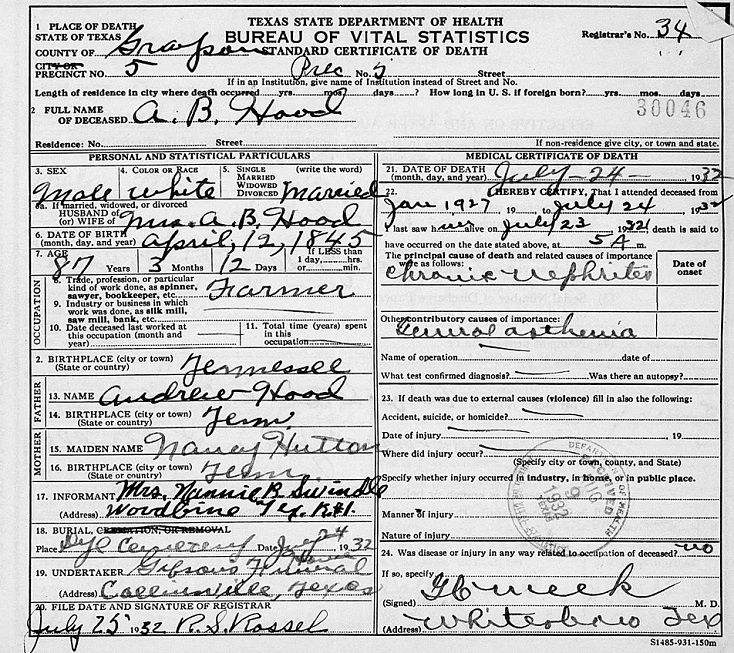 TEXAS STATE DEPARTMENT OF HEALTH
BUREAU OF VITAL STATISTICS
STANDARD CERTIFICATE OF DEATH
Registrar's No. 34
1 PLACE OF DEATH
STATE OF TEXAS
COUNTY OF Grayson
CITY OR
PRECINCT NO. 5 Prec No. 5 Street
If in an Institution, give name of Institution instead of Street and No.
Length of residence in city where death occurred yrs. mos. days? How long in U. S. if foreign born? yrs. mos. days
30046
2 FULL NAME
OF DECEASED A. B. Hood
Residence: No. Street If non-residence give city, or town and state.
PERSONAL AND STATISTICAL PARTICULARS
3. SEX 4. COLOR OR RACE 5. SINGLE MARRIED WIDOWED DIVORCED (write the word)
Male White Married
5a. If married, widowed, or divorced
HUSBAND OF
(or) WIFE OF Mrs. A. B. Hood
6. DATE OF BIRTH
(month, day, and year) April, 12, 1845
7. AGE If LESS than
87 Years 3 Months 12 Days 1 day, hrs. or min.
8. Trade, profession, or particular
kind of work done, as spinner,
sawyer, bookkeeper, etc. Farmer
9. Industry or business in which
work was done, as silk mill,
saw mill, bank, etc.
10. Date deceased last worked at
this occupation (month and
year)
11. Total time (years) spent
in this
occupation
OCCUPATION
2. BIRTHPLACE (city or town)
(State or country) Tennessee
FATHER
13. NAME Andrew Hood
14. BIRTHPLACE (city or town)
(State or country) Tenn.
MOTHER
15. MAIDEN NAME Nancy Hutton
16. BIRTHPLACE (city or town)
(State or country) Tenn.
17. INFORMANT Mrs. Nannie B. Swindle
(Address) Woodbine Tex. R#1.
18. BURIAL, CREMATION, OR REMOVAL
Place Cemetery Date July 24 1932
19. UNDERTAKER Gibson's Funeral Home
(Address) Collinsville, Texas
20. FILE DATE AND SIGNATURE OF REGISTRAR
July 25 1932 R. S. Rossel
MEDICAL CERTIFICATE OF DEATH
21. DATE OF DEATH
(month, day, and year) July - 24 - 1932
22. I HEREBY CERTIFY, That I attended deceased from
Jan 1927 19 to July 24 1932
I last saw him alive on July 23 1932 death is said to
have occurred on the date stated above, at 5 A m.
The principal cause of death and related causes of importance
were as follows:
Date of
onset
Chronic Nephritis
Other contributory causes of importance:
General asthenia
Name of operation date of
What test confirmed diagnosis? Was there an autopsy?
23. If death was due to external causes (violence) fill in also the following:
Accident, suicide, or homicide?
Date of injury 19
Where did injury occur?
(Specify city or town, county, and State)
Specify whether injury occurred in industry, in home, or in public place.
Manner of injury
Nature of injury
24. Was disease or injury in any way related to occupation of deceased? no
If so, specify
(Signed) G B Meek M. D.
(Address) Whitesboro Tex
S1485-931-150m